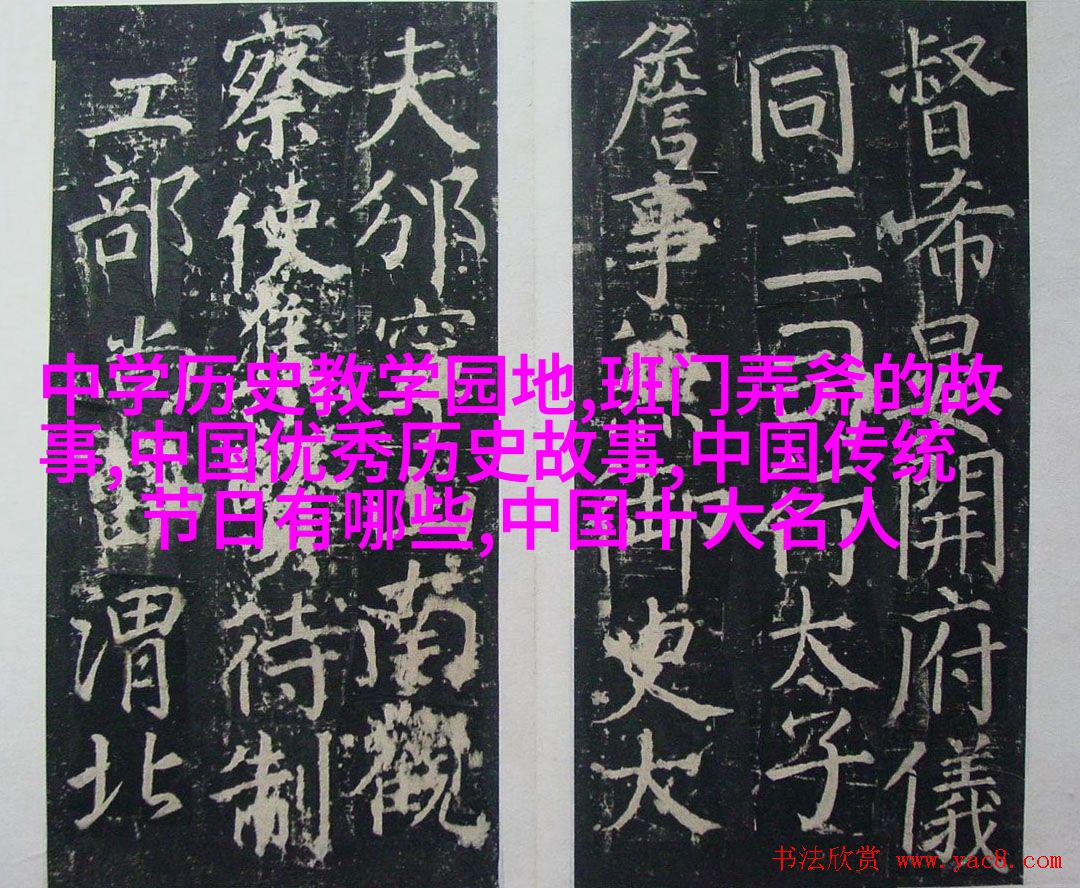 督希開府儀
同三司行太子
詹事兼御史大
夫邠寧南觀
察使待制
工部尚渭北
中学历史教学园地,班门弄斧的故
事,中国优秀历史故事,中国传统
节日有哪些,中国十大名人
书法欣赏 www.yac8.com